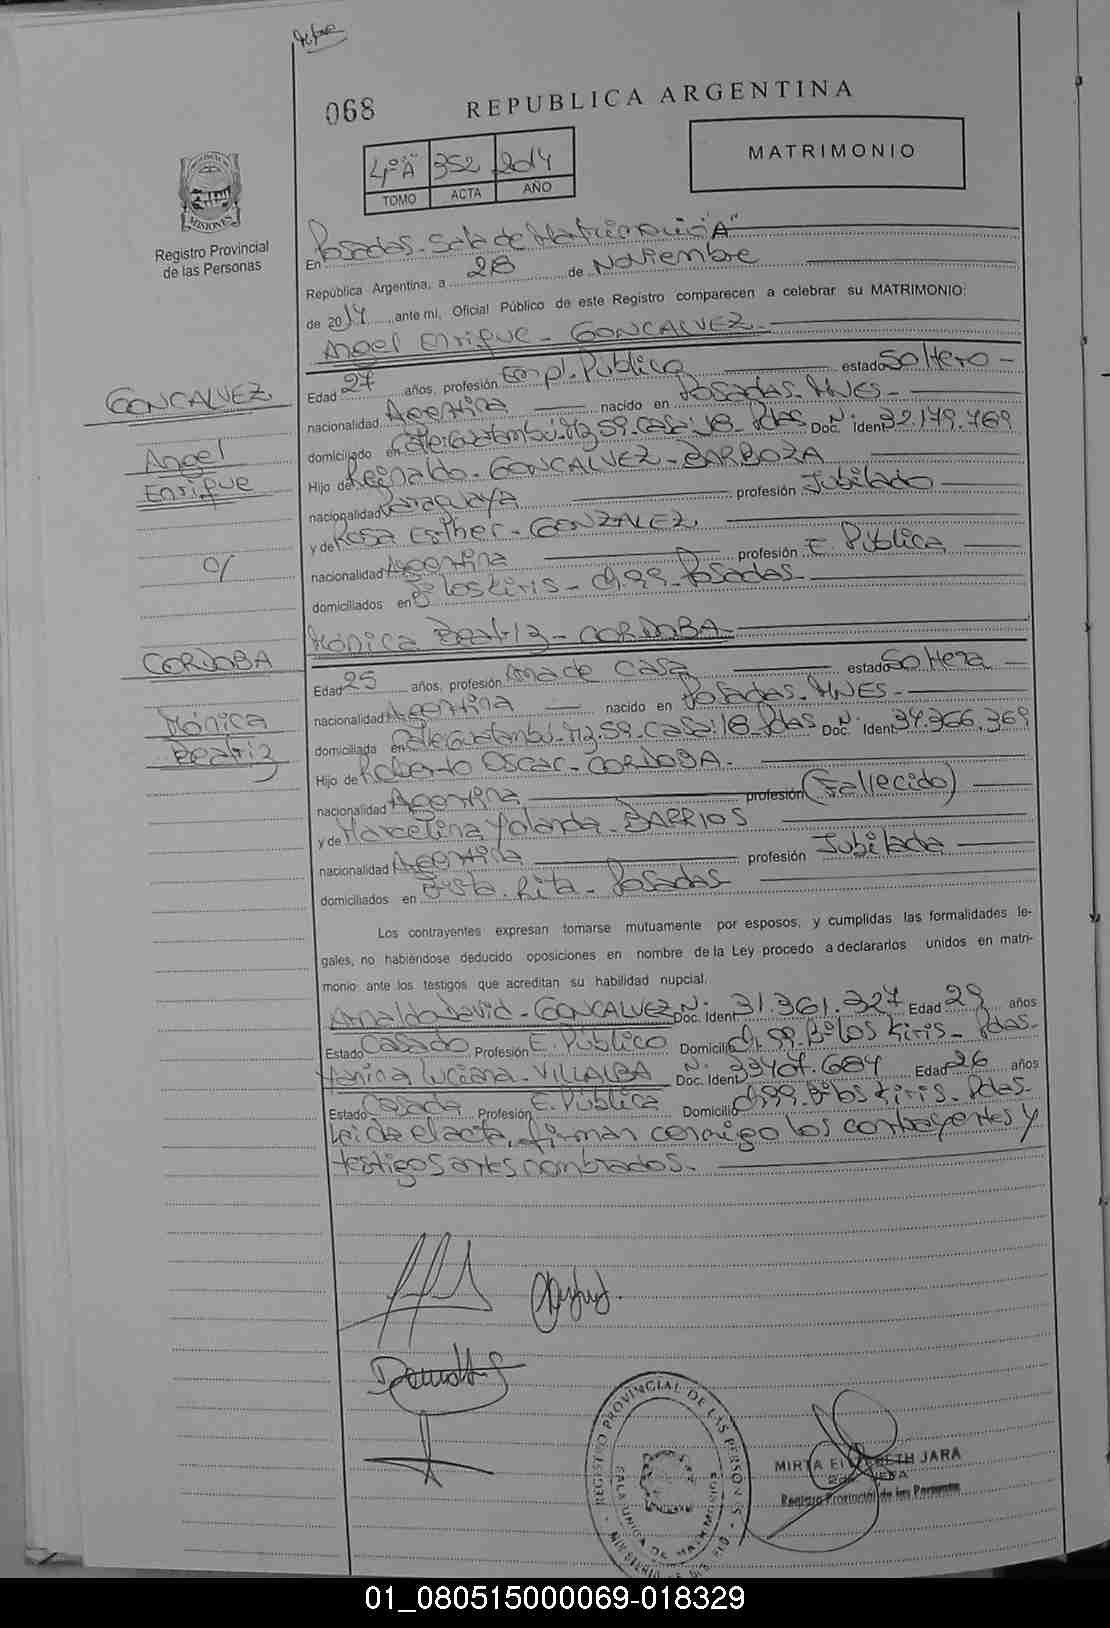 068
REPUBLICA ARGENTINA
4º"A" 352 2014
TOMO ACTA AÑO
MATRIMONIO
MISIONES
Registro Provincial
de las Personas
En Posadas-Sala de Matrimonio "A"
República Argentina, a 28 de Noviembre
de 2014, ante mi, Oficial Público de este Registro comparecen a celebrar su MATRIMONIO:
Angel Enrique- GONCALVEZ-
GONCALVEZ
Angel
Enrique
c/
Edad 27 años, profesión Empl. Público estado Soltero -
nacionalidad Argentina nacido en Posadas-MNES-
domiciliado en Mz.59-Casa:18-Pdas Doc. Ident N: 32.179.769
Hijo de Reginaldo-GONCALVEZ-BARBOZA
nacionalidad Paraguaya profesión Jubilado
y de Rosa Esther-GONZALEZ
nacionalidad Argentina profesión E. Pública
domiciliados en Bº los Kiris- Ch.99-Posadas-
Mónica Beatriz- CORDOBA-
CORDOBA
Mónica
Beatriz
Edad 25 años, profesión Ama de Casa estado Soltera
nacionalidad Argentina nacido en Posadas-MNES-
domiciliada en Mz.59-Casa:18-Pdas Doc. Ident N: 34.366.369
Hijo de Roberto Oscar-CORDOBA-
nacionalidad Argentina profesión (Fallecido)
y de Marcelina Yolanda-BARRIOS
nacionalidad Argentina profesión Jubilada
domiciliados en Bº Sta. Rita- Posadas
Los contrayentes expresan tomarse mutuamente por esposos, y cumplidas las formalidades le-
gales, no habiéndose deducido oposiciones en nombre de la Ley procedo a declararlos unidos en matri-
monio ante los testigos que acreditan su habilidad nupcial.
Arnaldo David-GONCALVEZ Doc. Ident N: 31.361.327 Edad 29 años
Estado Casado Profesión E. Público Domicilio Ch.99-Bº los Kiris- Pdas-
Yanina Luciana-VILLALBA Doc. Ident N: Edad 26 años
Estado Casada Profesión E. Pública Domicilio Ch.99-Bº los Kiris- Pdas-
Leída el acta, firman conmigo los contrayentes y
testigos antes nombrados.-
REGISTRO PROVINCIAL DE LAS PERSONAS
SALA UNICA DE MATRIMONIOS
MIRTA JARA
Registro Provincial de las Personas
01_080515000069-018329